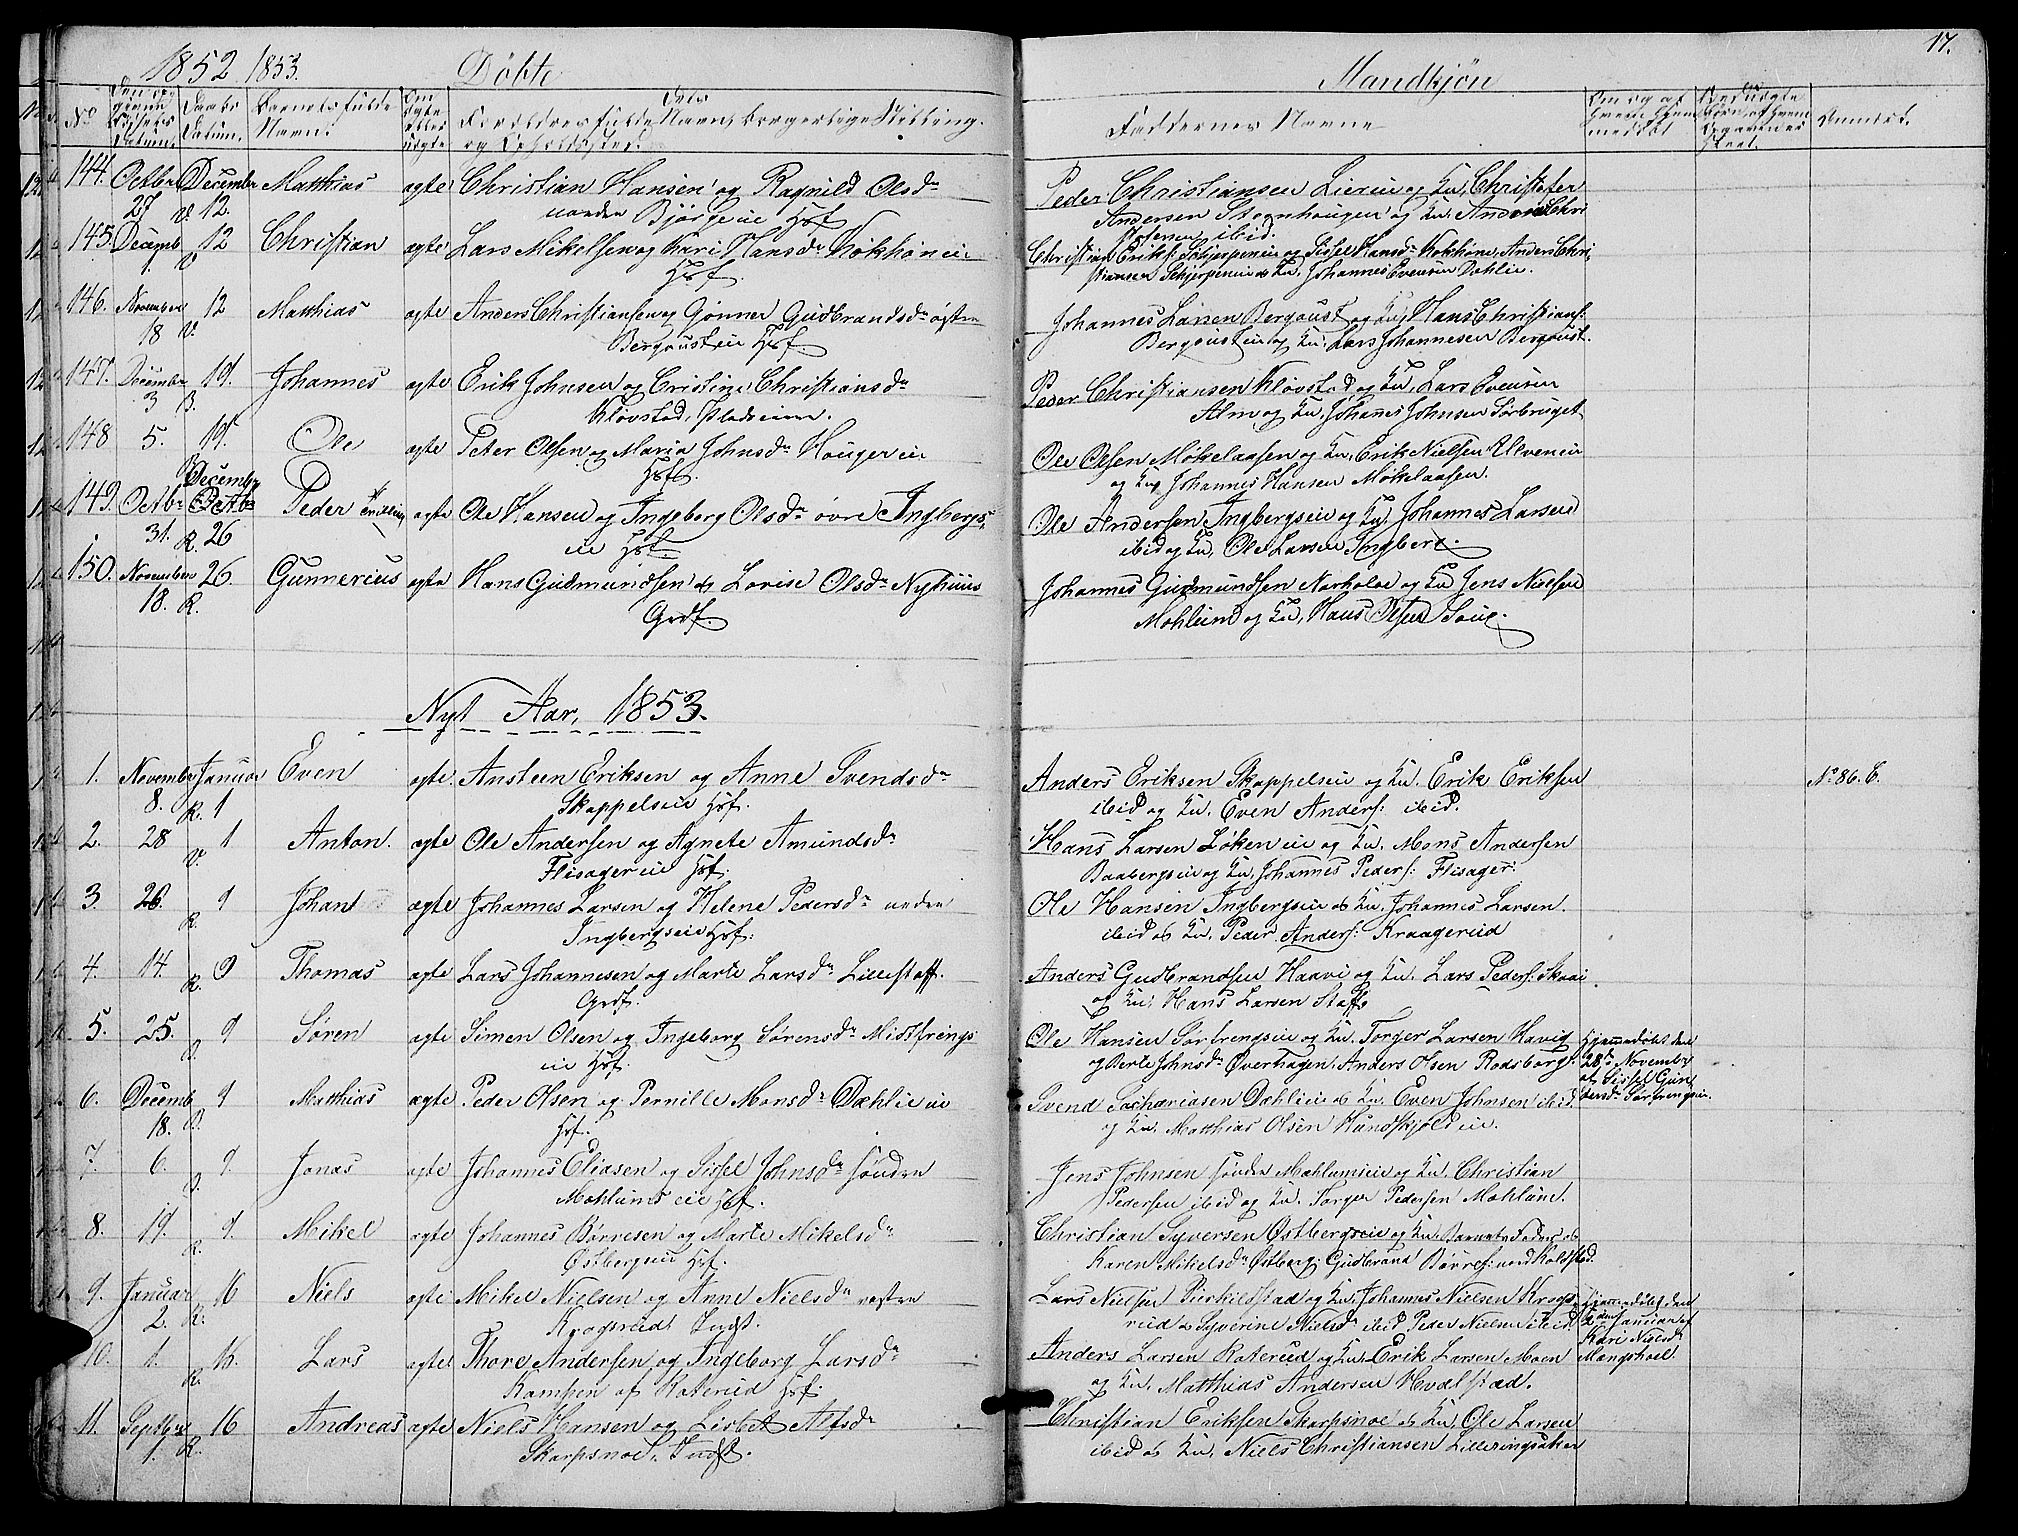 1852 1853. Døbte Mandkjøn 17.
No Datum. Daabs Datum. Barnets fulde Navn. Forældres fulde Navn, borgerlige Stilling og
Faddernes Navne Anmerk.
144. Octbr 27 December V. 12. Matthias ægte Christian Hansen og Ragnild Olsdr
nordre Bjørge eie Hsf
Peder Christiansen Lierei og Kv, Christofer
Andersen Steenhougen og Kv, Anders Christofersen ibid.
145. Decemb 1. V 12 Christian ægte Lars Mikelsen og Kari Hansdr Kokhønei
Hsf
Christian Eriks. Schjerpenei og Sissel Hansdr Kokhøne, Anders Christiansen
Schjerpenei og Kv, Johannes Evensen Dahlie.
146. November 18 V. 12 Matthias ægte Anders Christiansen og Gønner Gudbrandsdr østre
Bergoust eie Hsf
Johannes Larsen Bergoust og Kv, Hans Christians.
Bergoust eie og Kv. Lars Johannesen Bergoust.
147. December 3 19. Johannes ægte Erik Johnsen og Cristine Christiansdr
Kløvstad, Pladseiere.
Peder Christiansen Kløvstad og Kv, Lars Evensen
Alm og Kv, Johanes Johnsen Sørbryget
148 5. 19. Ole ægte Peter Olsen og Maria Johnsdr Houger eie
Hsf.
Ole Olsen Mokelaasen og Kv, Erik Nielsen Ulven eie
og Kv, Johannes Hansen Mokelaasen.
149. Octbr 31. December R. 26 Peder ægte Ole Hansen og Ingeborg Olsdr øvre Ingbergs
eie Hsf.
Ole Andersen Ingbergseie og Kv, Johannes Larsen
ibid og Kv, Ole Larsen Ingberg.
150. November 18. R. 26 Gunnerius ægte Hans Gudmundsen og Lovise Olsdr Nyhuus
Grdf.
Johannes Gudmundsen Narholoe og Kv Jens Nielsen
Mohlum og Kv, Hans Olsen Soug.
Nyt Aar, 1853.
1. Novembr 8. Januar R. 1 Even ægte. Ansteen Eriksen og Anne Svendsdr
Skappelseie Hsf.
Anders Eriksen Skappelseie og Kv. Erik Eriksen
ibid og Kv. Even Anders. ibid.
No 86. C.
2. 28 V. 1 Anton. ægte Ole Andersen og Agnete Amundsdr
Flisager eie Hsf.
Hans Larsen Løken eie og Kv. Mons Andersen
Baabergseie og Kv. Johannes Peders. Flisager.
3. 20. R. 9 Johan ægte Johannes Larsen og Helene Pedersdr nedre
Ingbergseie Hsf.
Ole Hansen Ingbergseie og Kv. Johannes Larsen.
ibid og Kv. Peder Anders. Kraagerud
4. 14. R. 9 Thomas ægte Lars Johannesen og Marte Larsdr Lillestaff.
Grdf.
Anders Gudbrandsen Haavi og Kv. Lars Peders. Skaai
og Kv. Hans Larsen Staff.
5. 25. 9 Søren ægte Simen Olsen og Ingeborg Sørensdr Midtfrengs
eie Hsf.
Ole Hansen Sørfrengseie og Kv. Torger Larsen Havig
og Berte Johnsdr Øverhagen, Anders Olsen Rodsborg.
Hjemmedøbt den 28de November af Sissel Gunbersdr Sørfrengeie.
6. Decemb 18. 9 Matthias ægte Peder Olsen og Pernille Monsdr Dæhlie eie
Hsf.
Svend Sachariasen Dæhlieie og Kv. Even Johnsen ibid.
og Kv. Matthias Olsen Hundskjold eie.
7. 6. 9. Jonas ægte Johannes Eliasen og Sissel Johnsdr søndre
Mohlums eie Hsf.
Jens Johnsen søndre Mohlumseie og Kv. Christian
Pedersen ibid og Kv. Torger Pedersen Mohlum.
8. 19. R. 9. Mikel ægte Johannes Børresen og Marte Mikelsdr
Østbergseie Hsf.
Christian Syversen Østbergseie og Kv. Barnets Fader og
Karen Mikelsdr Østberg. Gudbrand Børres. nord Koldstad.
9. Januar 2. R. 16 Niels ægte Mikel Nielsen og Anne Nielsdr vestre
Krogsrud Indst.
Lars Nielsen Pierkildstad og Kv. Johannes Nielsen Krogsrud
og Syverine Nielsdr ibid Peder Nielsen ibid
Hjemmedøbt den 2den Januar af Kari Nielsdr Mangshoel.
10. 1. R. 16. Lars ægte Thore Andersen og Ingeborg Larsdr
Kampen af Raterud Hsf.
Anders Larsen Raterud og Kv. Erik Larsen Moen
og Kv. Matthias Andersen Hvalstad.
11. Septber 1. R. 16 Andreas ægte Niels Hansen og Lisbet Alfsdr
Skarpsnoe, Indst.
Christian Eriksen Skarpsnoe og Kv, Ole Larsen
ibid og Kv. Niels Christiansen Lilleringsaker